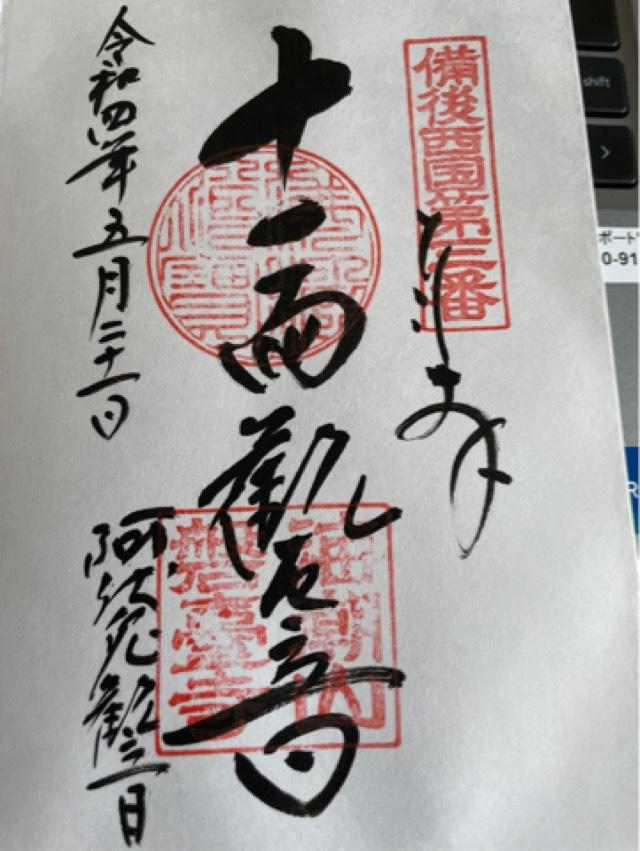 備後西国第三番
奉拝
十一面観世音
海潮山
磐台寺
令和四年五月二十一日
阿伏兎観音
shift
ポート
0-91